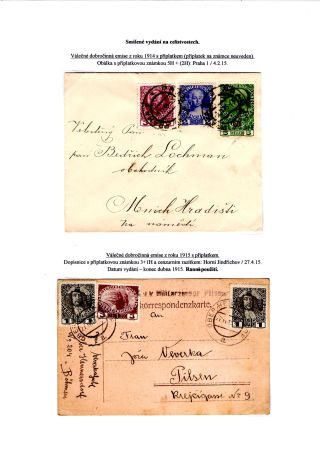 Smíšené vydání na celistvostech.
Válečné dobročinná emise z roku 1914 s příplatkem (příplatek na známce neuveden)
Obálka s příplatkovou známkou 5H + (2H): Praha 1 / 4.2.15.
Velectěný Pán
pan Bedřich Lochman
obchodník
Mnich. Hradiště
na náměstí
Válečné dobročinná emise z roku 1915 s příplatkem
Dopisnice s příplatkovou známkou 3+1H a cenzurním razítkem: Horní Jindřichov / 27.4.15.
Datum vydání – konec dubna 1915. Ranné použití.
k.u.k. Militärzensur Pilsen
Korrespondenzkarte.
Fran
Jóra Neverka
Pilsen
Krejčigasse No 9
Ober Hennersdorf
Böhmen